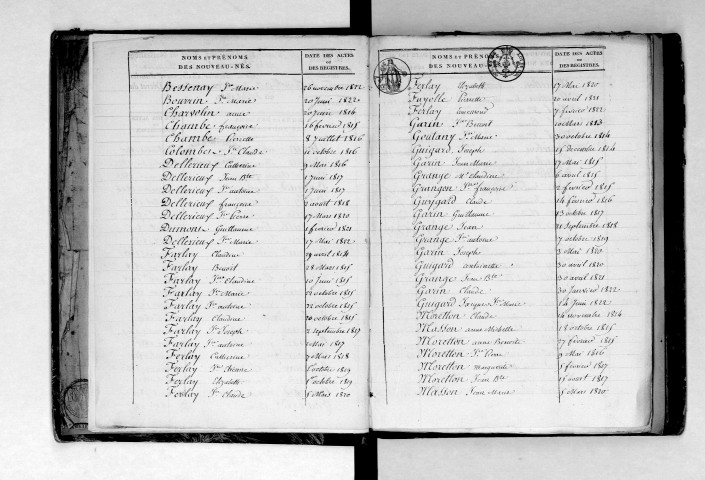 NOMS ET PRÉNOMS
DES NOUVEAU-NÉS.
DATE DES ACTES
OU
DES REGISTRES.
Bessenay Jn Marie 26 novembre 1822
Bouvrin Jn Marie 20 Juin 1822
Charvolin anne 20 Juin 1816
Chambe françoise 16 février 1815
Chambe Pierrette 8 Juillet 1816
Colombet Jn Claude 11 octobre 1816
Dellerieux Catherine 9 Mars 1816
Dellerieux Jean Bte 1 Juin 1817
Dellerieux Jn antoine 1 Juin 1817
Dellerieux françoise 2 aout 1818
Dellerieux Jn Pierre 17 Mars 1820
Dumont Guillaume 1 février 1821
Dellerieux Jn Marie 17 Mai 1822
Farlay Claudine 29 avril 1814
Farlay Benoit 28 Mars 1815
Farlay Jn Claudine 10 Juin 1815
Farlay Jn Marie 22 octobre 1815
Farlay Jn antoine 22 octobre 1815
Farlay Claudine 20 octobre 1815
Farlay Jn Joseph 2 Septembre 1817
Farlay Jn antoine 2 Mai 1817
Ferlay Catherine 7 Mars 1818
Ferlay Etienne 1 octobre 1819
Ferlay Elizabeth 1 octobre 1819
Ferlay Jn Claude 5 Mars 1820
NOMS ET PRÉNOMS
DES NOUVEAU-NÉS.
DATE DES ACTES
OU
DES REGISTRES.
Ferlay Elizabeth 17 Mai 1820
Fayolle Pierrette 20 avril 1821
Ferlay 7 février 1822
Garin Jn Benoit 10 Mars 1813
Goutany Jn Marie 30 octobre 1814
Guigard Joseph 15 décembre 1814
Garin Jean Marie 17 Mai 1815
Grange Mie Claudine 6 avril 1815
Grangon Jn françoise 2 février 1815
Guyard Claude 14 février 1816
Garin Guillaume 13 octobre 1817
Grange Jean 21 Septembre 1818
Grange Jn antoine 7 octobre 1819
Garin Joseph 3 Mai 1820
Guigard antoinette 30 avril 1820
Grange Jean Bte 30 avril 1821
Garin Claude 30 Janvier 1822
Guigard Jacques Jn Marie 14 Juin 1822
Moretton Claude 16 novembre 1814
Masson anne Michelle 18 octobre 1815
Moretton anne Pierrette 27 février 1815
Moretton Jn Pierre 9 Mai 1816
Moretton Marguerite 5 février 1817
Moretton Jean Bte 15 aout 1817
Masson Jean Marie 5 Mars 1820